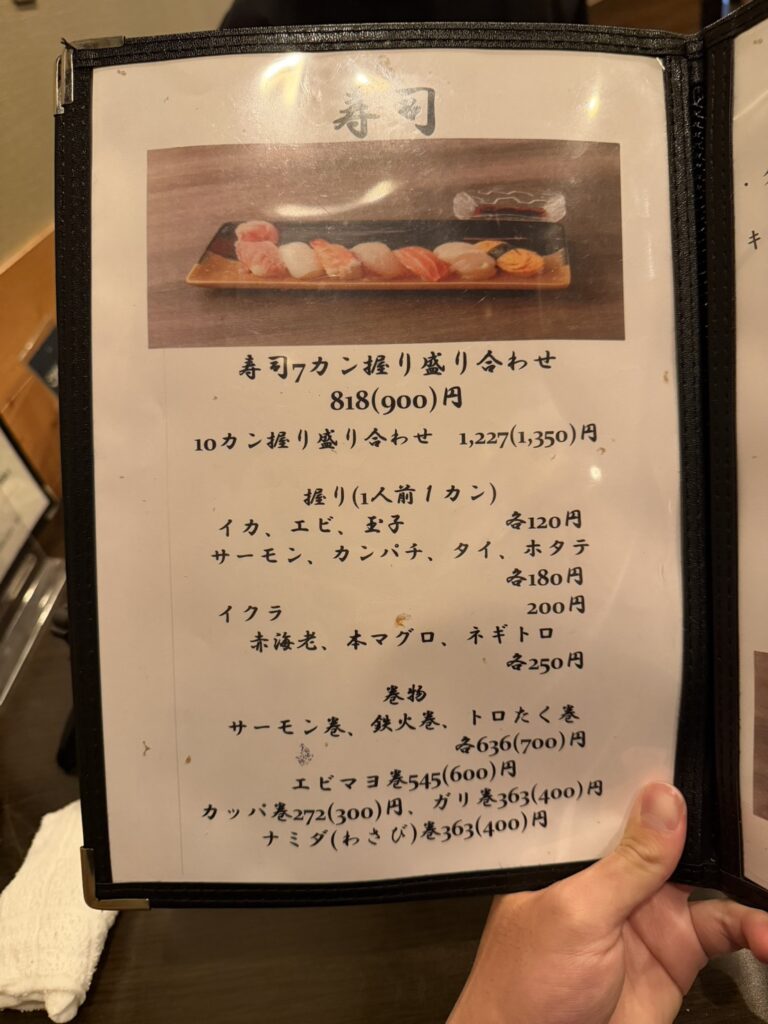 寿司
寿司7カン握り盛り合わせ
818(900)円
10カン握り盛り合わせ 1,227(1,350)円
握り(1人前1カン)
イカ、エビ、玉子 各120円
サーモン、カンパチ、タイ、ホタテ
各180円
イクラ 200円
赤海老、本マグロ、ネギトロ
各250円
巻物
サーモン巻、鉄火巻、トロたく巻
各636(700)円
エビマヨ巻545(600)円
カッパ巻272(300)円、ガリ巻363(400)円
ナミダ(わさび)巻363(400)円